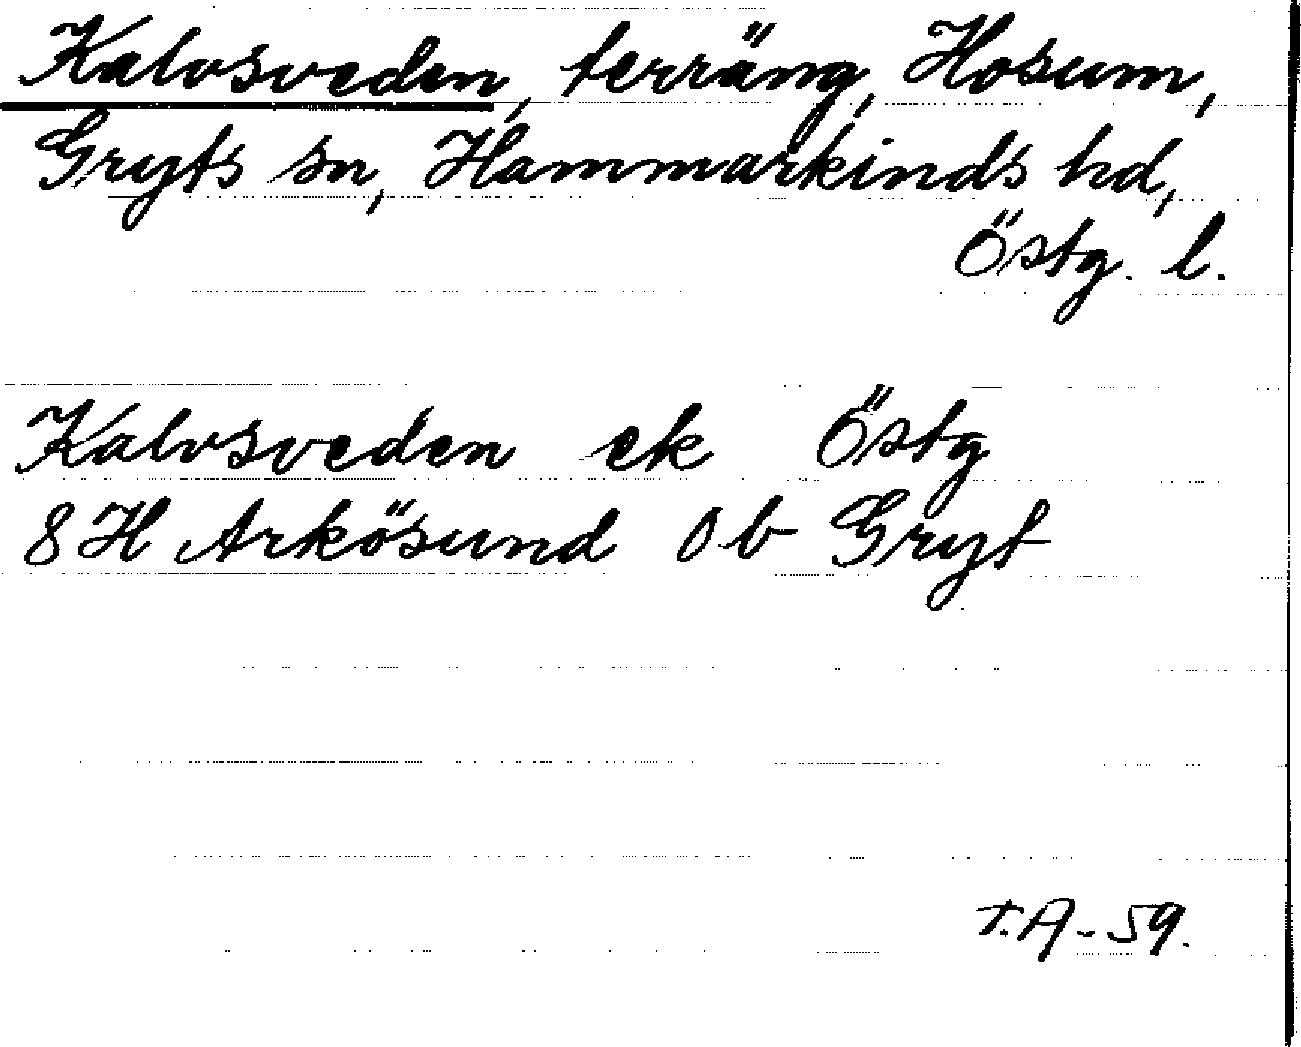 Kalvsveden, terräng, Hosum,
Gryts sn, Hammarkinds hd,
Östg. l.
Kalvsveden ek Östg
8H Arkösund 0b Gryt
T.A-59.